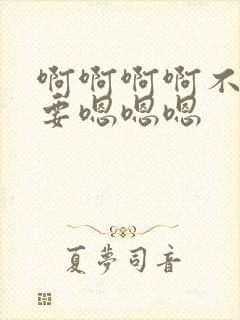 啊啊啊啊不
要嗯嗯嗯
夏夢司音